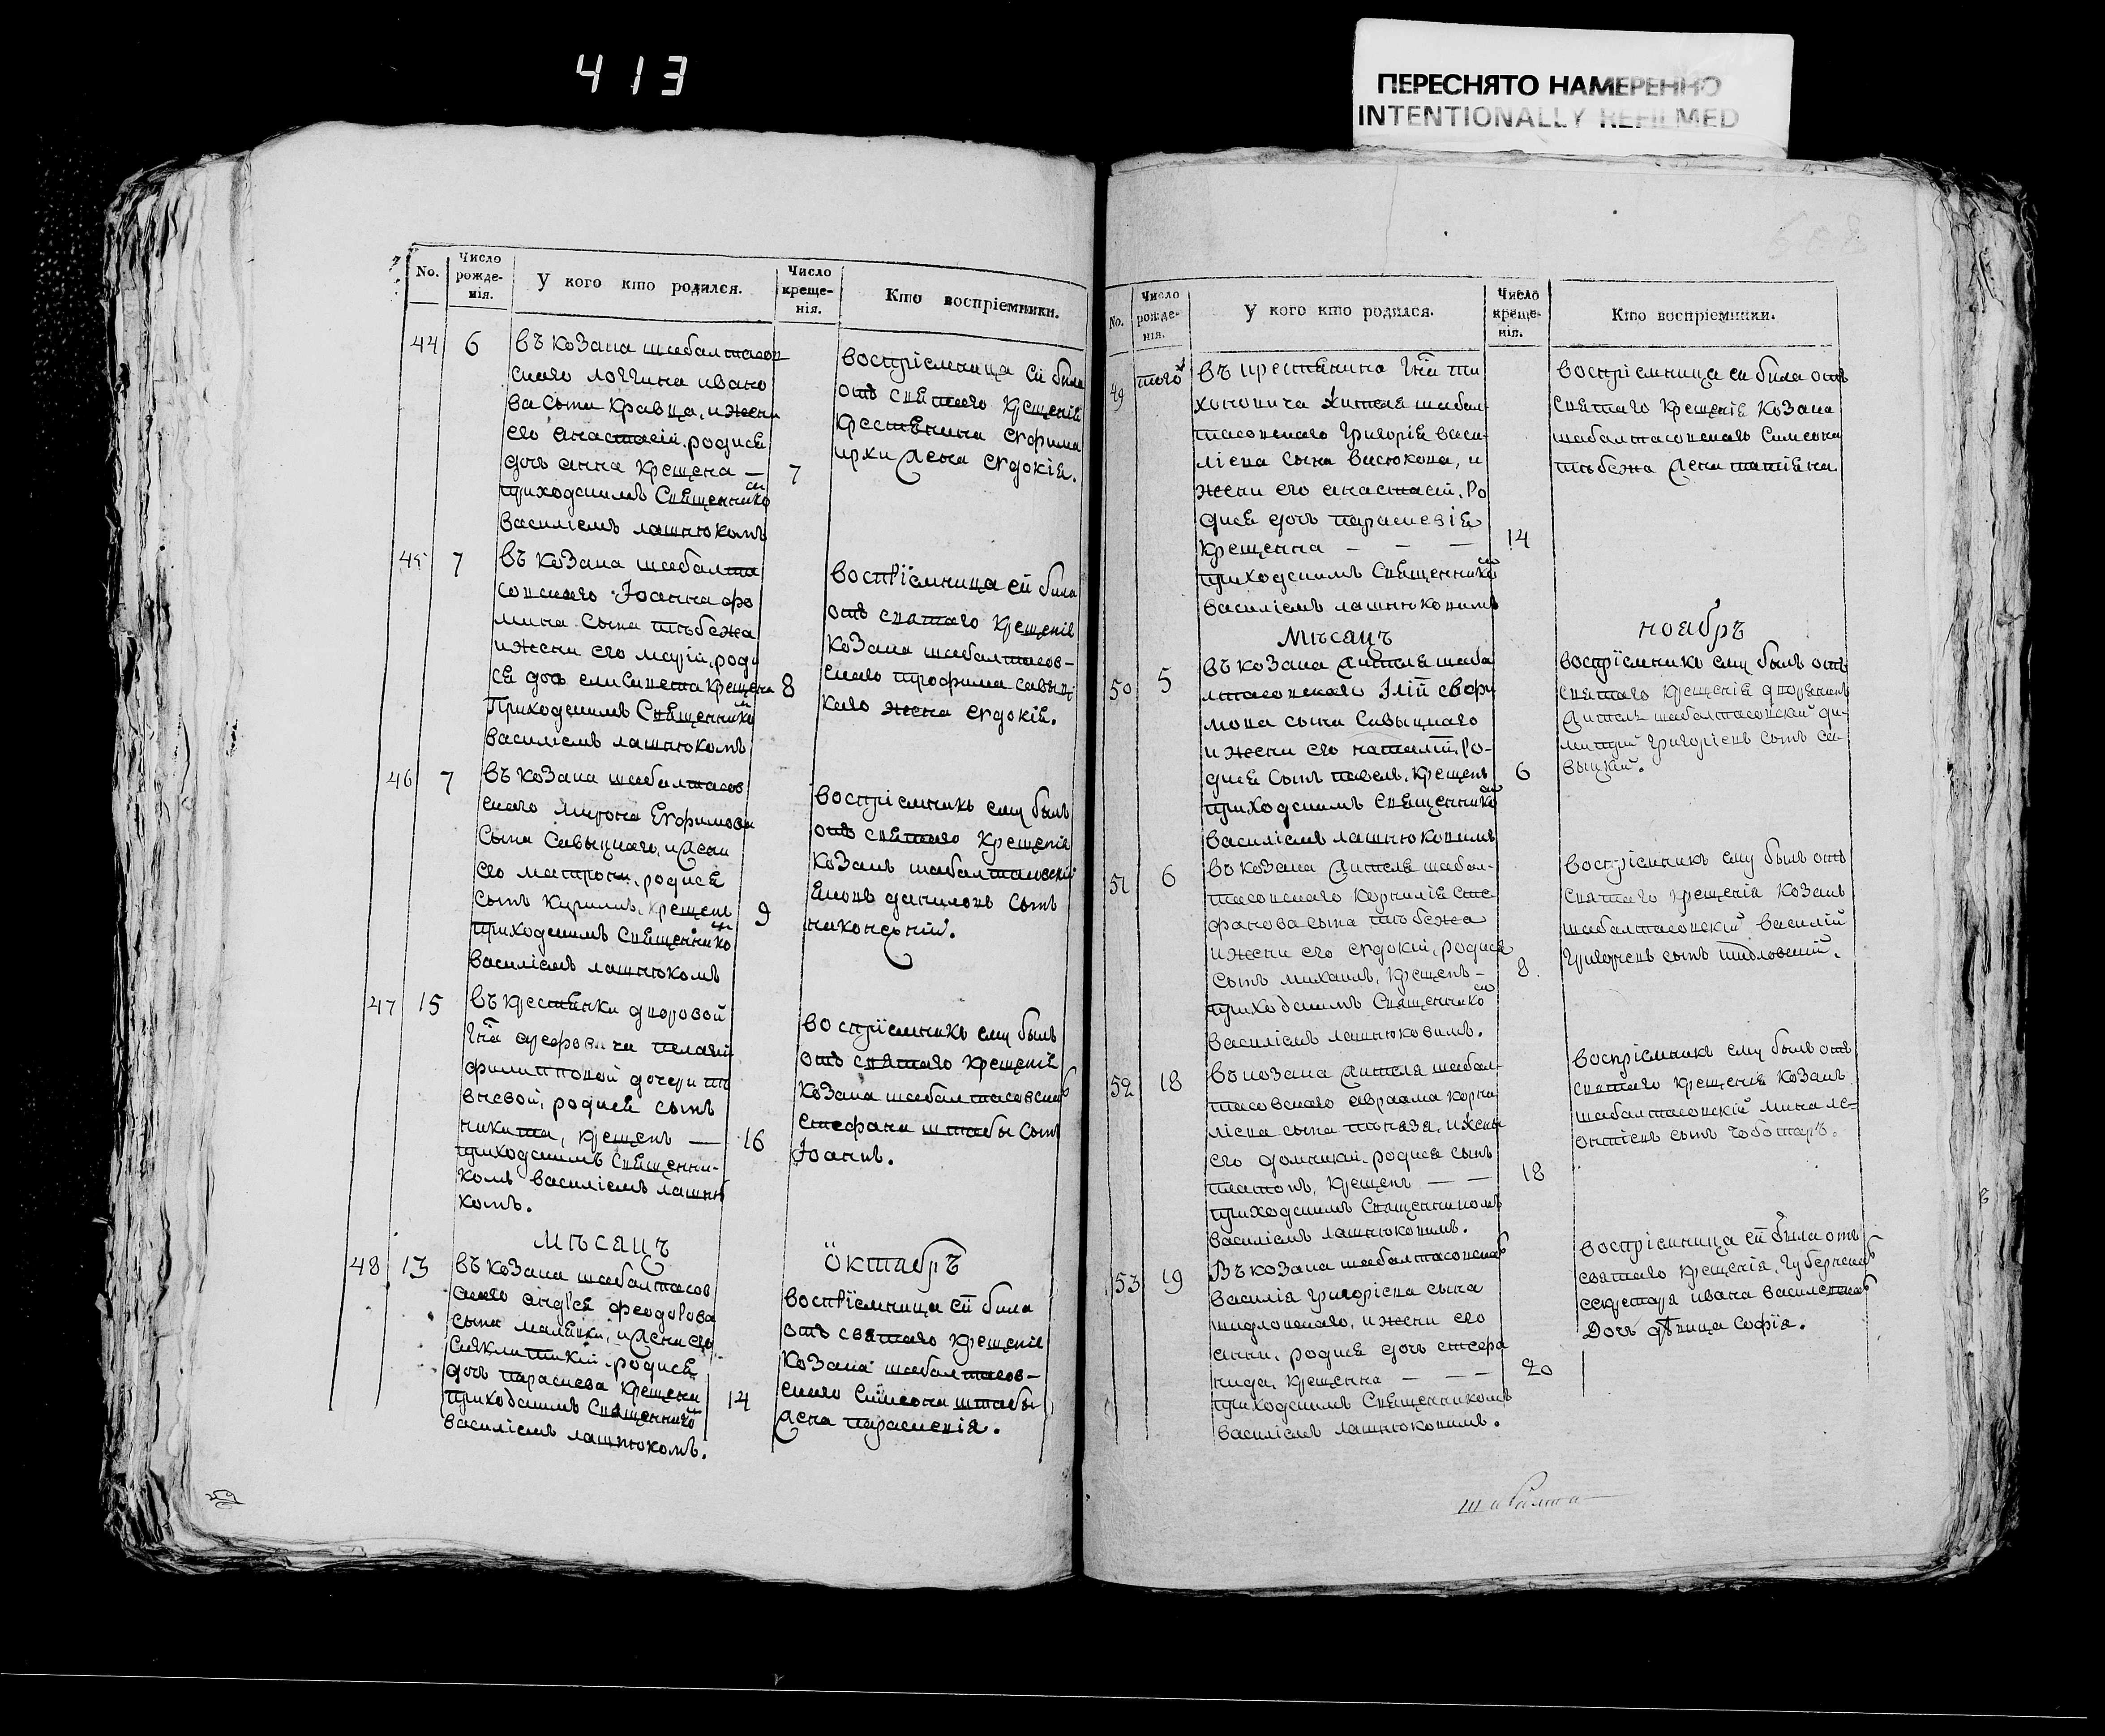 413
ПЕРЕСНЯТО НАМЕРЕННО
INTENTIONALLY REFILMED
No.
Число рожде- нія.
У кого кто родился.
Число креще- нія.
Кто воспріемники.
44 6
въ козака шабалтасов
скаго логгина ивано
ва сына кравца, и жени
его анастасіи, родися
дочь анна крещена — 7
приходскимъ священнико
василіемъ лашнюкомъ
воспріемница ей била
отъ святаго крещенія
крестянина евфима
жена евдокія.
45 7
въ козака шабалта
совскаго Іоанна фо
мина сына
и жени его маріи, роди
ся дочь елисавета крещена 8
приходскимъ священнико
василіемъ лашнюкомъ
воспріемница ей била
отъ святаго крещенія
козака шабалтасов-
скаго трофима савиц
каго жена евдокія.
46 7
въ козака шабалтасов
скаго мирона Евфимова
сына савыцкаго, и жени
его матрони, родися
сынъ кирилъ, крещенъ 9
приходскимъ священнико
василіемъ лашнюкомъ
воспріемникъ ему былъ
отъ святаго крещенія
козакъ шабалтасовскій
даниловъ сынъ
47 15
въ крестянки дворовой
пелагіи
филипповой дочери
родися сынъ
никита, крещенъ — 16
приходскимъ священни-
комъ василіемъ лашню
комъ.
воспріемникъ ему былъ
отъ святаго крещенія
козака шабалтасовскаго
стефана штабы сынъ
Іоаннъ.
мѣсяцъ октабръ
48 13
въ козака шабалтасов
скаго андрея феодорова
сына и жени его
родися
дочь параскева крещена 14
приходскимъ священнико
василіемъ лашнюкомъ.
воспріемница ей била
отъ святаго крещенія
козака шабалтасов-
скаго симеона штабы
жена параскевія.
No.
Число рожде- нія.
У кого кто родился.
Число креще- нія.
Кто воспріемники.
49 того
въ крестянина ти
хоновича жителя шабал-
тасовскаго григорія васи-
ліева сына васюкова, и
жени его анастасіи, ро
дися дочь параскевія
крещенна — — — 14
приходскимъ священнико
василіемъ лашнюковимъ
воспріемница ей била отъ
святаго крещенія козака
шабалтасовскаго симеона
жена татіяна
мѣсяцъ ноябръ
50 5
въ козака жителя шаба
лтасовскаго Іліи
сына савыцкаго
и жени его наталіи, ро-
дися сынъ павелъ, крещенъ 6
приходскимъ священнико
василіемъ лашнюковимъ
воспріемникъ ему былъ отъ
святаго крещенія дворянинъ
житель шабалтасовскій ди-
митрій григоріевъ сынъ са-
выцкій.
51 6
въ козака жителя шабал-
тасовскаго корнилія сте
фанова сына
и жени его евдокіи, родися
сынъ михаилъ, крещенъ — 8.
приходскимъ священнико
василіемъ лашнюковимъ.
воспріемникъ ему былъ отъ
святаго крещенія козакъ
шабалтасовскій василій
григоріевъ сынъ шидловскій.
52 18
въ козака жителя шабал-
тасовскаго авраама корни
ліева сына и жены
его домникіи, родися сынъ
платонъ, крещенъ — — 18
приходскимъ священникомъ
василіемъ лашнюковимъ.
воспріемникъ ему былъ отъ
святаго крещенія козакъ
шабалтасовскій мина ле-
онтіевъ сынъ чоботаръ.
53 19
Въ козака шабалтасовскаго
василія григоріева сына
шидловскаго, и жени его
анни, родися дочь
крещенна — — — 20
приходскимъ священникомъ
василіемъ лашнюковимъ.
воспріемница ей была отъ
святаго крещенія, губернскаго
секретаря ивана
дочь дѣвица софія.